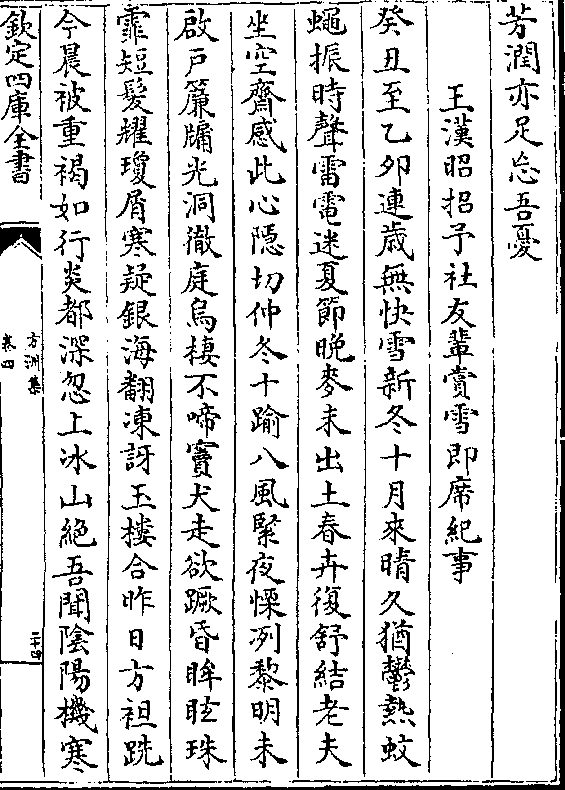 芳潤亦足忘吾憂
王漢昭招予社友輩賞雪即席紀事
癸丑至乙卯連歲無快雪新冬十月來晴久猶鬱熱蚊
蠅振時聲雷電迷夏節晩麥未出土春卉復舒結老夫
坐空齋感此心隱切仲冬十踰八風緊夜慄冽黎明未
啟户簾牖光洞徹庭烏棲不啼竇犬走欲蹶昏眸眩珠
霏短髮耀瓊屑寒疑銀海翻凍訝玉樓合昨日方袒跣
今晨被重褐如行炎都深忽上冰山絶吾聞陰陽機寒
欽定四庫全書
方洲集
卷四
二十四